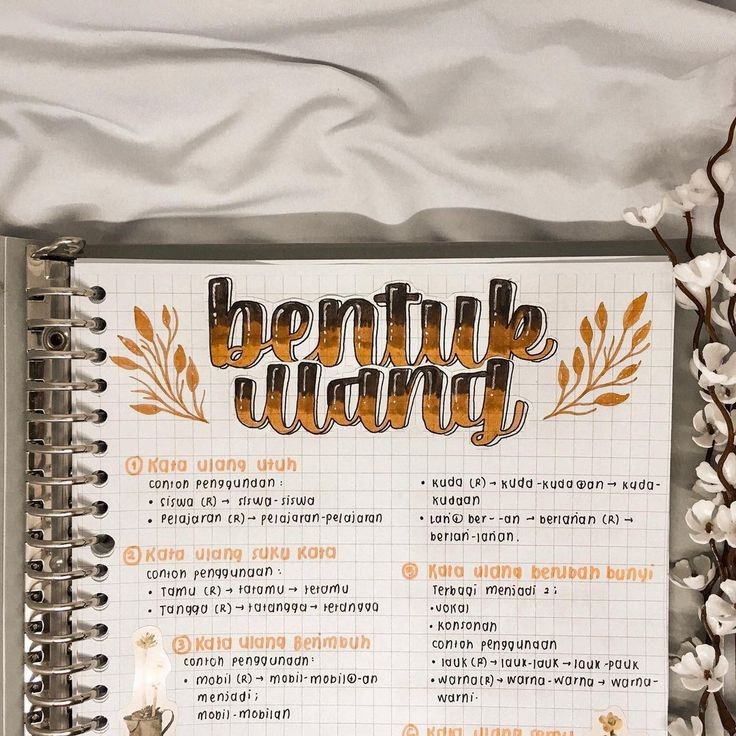 bentuk
ulang
① Kata ulang utuh
contoh penggunaan :
• siswa (R) → siswa-siswa
• Pelajaran (R) → pelajaran-pelajaran
② Kata ulang suku kata
contoh penggunaan :
• Tamu (R) → tatamu → tetamu
• Tangga (R) → tatangga → tetangga
③ Kata ulang Berimbuh
contoh penggunaan:
• mobil (R) → mobil-mobil+-an
menjadi ;
mobil-mobilan
• kuda (R) → kuda-kuda+an → kuda-
kudaan
• lari+ ber- -an → berlarian (R) →
berlari-larian.
⑤ Kata ulang berubah bunyi
Terbagi menjadi 2 ;
• vokal
• konsonan
contoh penggunaan
• lauk (R) → lauk-lauk → lauk-pauk
• warna (R) → warna-warna → warna-
warni.
Kata ulang semu